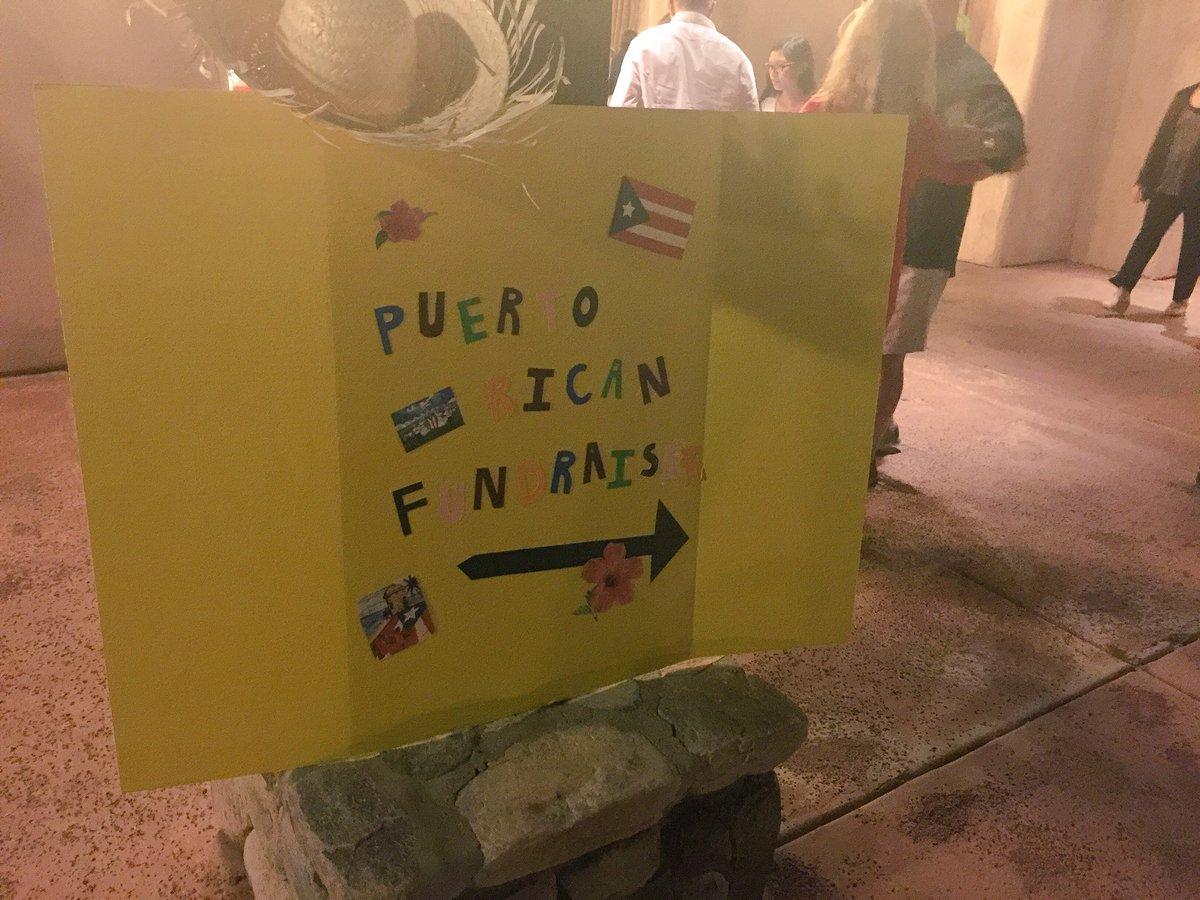 PUERTO
RICAN
FUNDRAISER